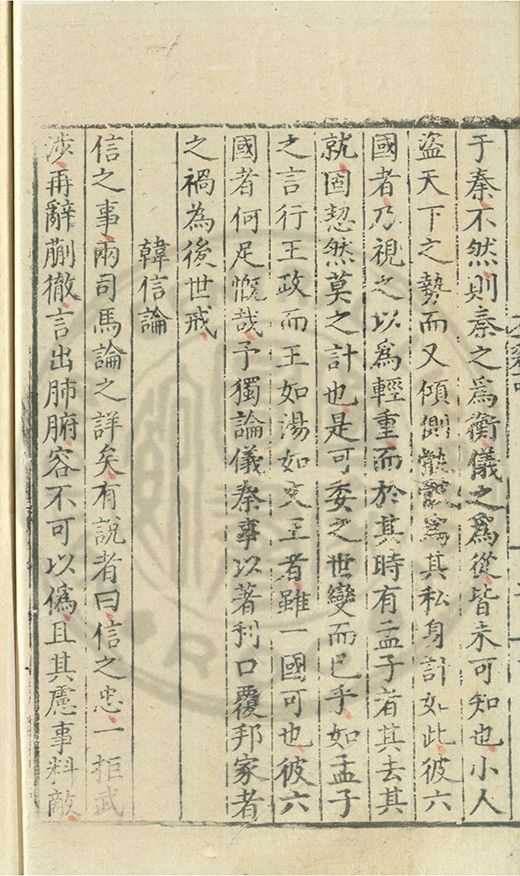 于秦不然則秦之為衡儀之為從皆未可知也小人
盜天下之勢而又傾側為其私身計如此彼六
國者乃視之以為輕重而於其時有孟子者其去其
就固恝然莫之計也是可委之世變而已乎如孟子
之言行王政而王如湯如文王者雖一國可也彼六
國者何足慨哉予獨論儀秦事以著利口覆邦家者
之禍為後世戒
韓信論
信之事兩司馬論之詳矣有說者曰信之忠一拒武
涉再辭蒯徹言出肺腑容不可以偽且其慮事料敵